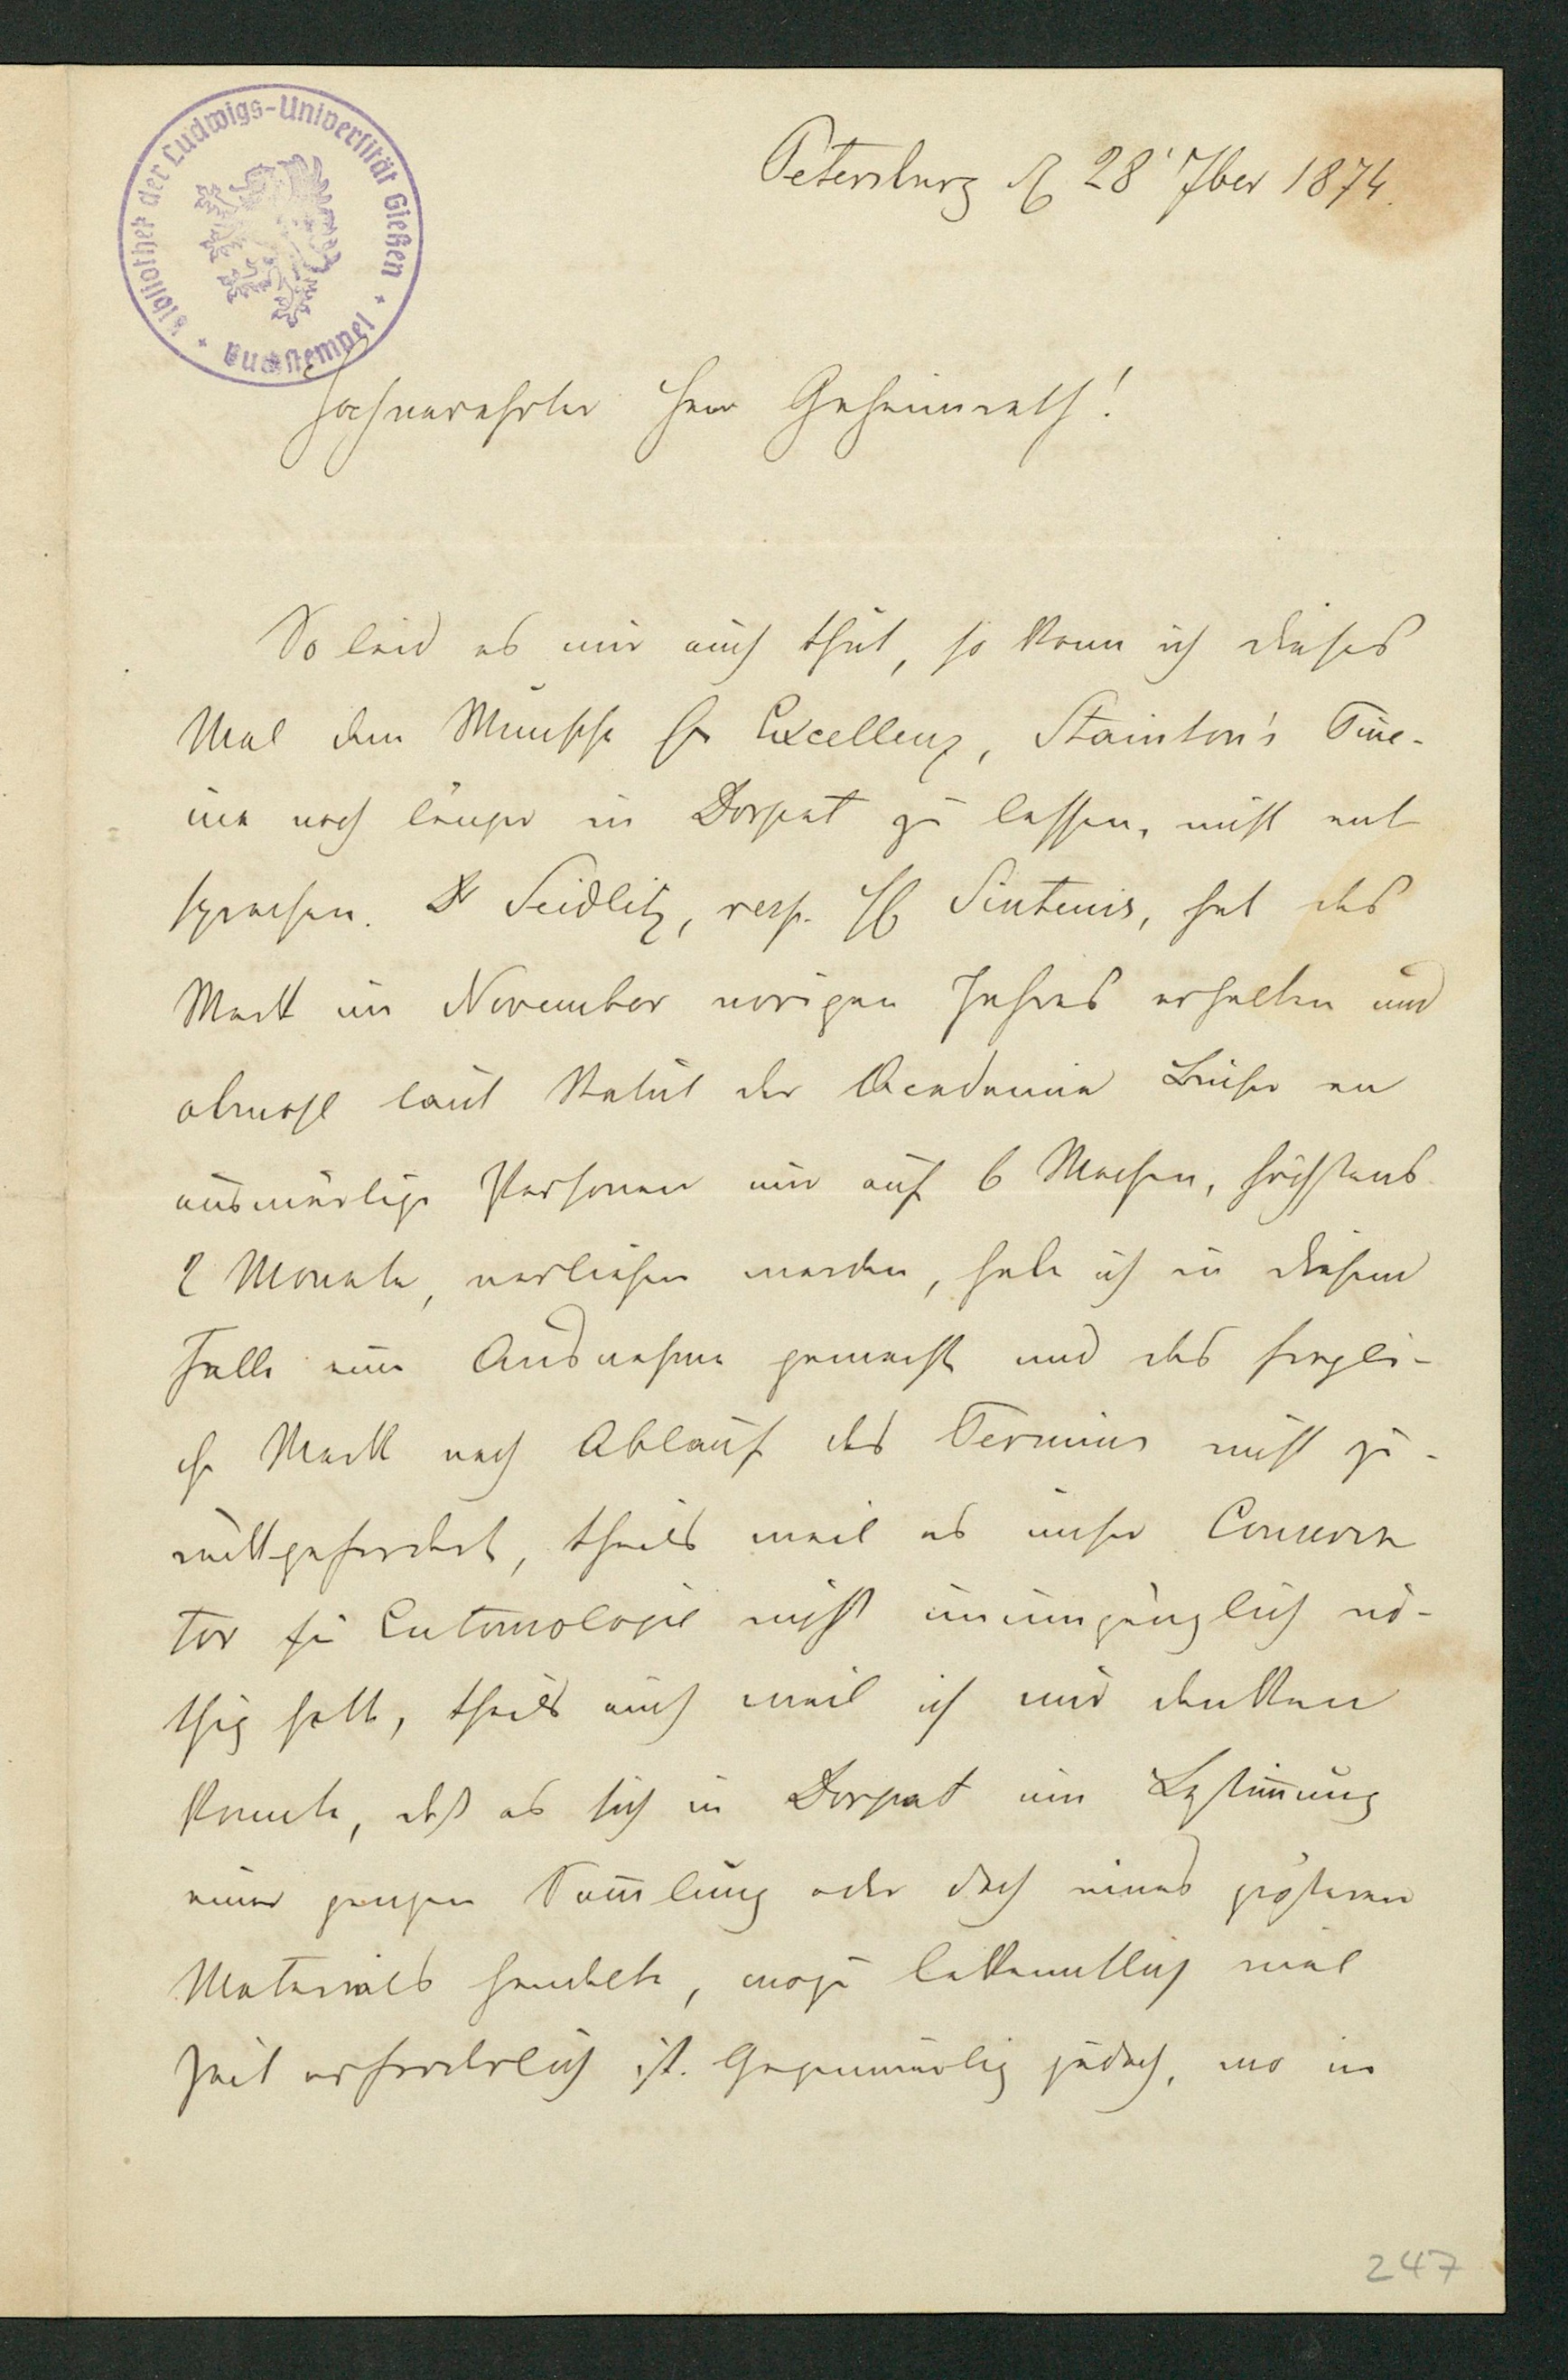 Bibliothek der Ludwigs-Universität Gießen
Buchstempel
Petersburg d. 28' 7ber 1874.
Hochverehrter Herr Geheimrath!
So leid es mir auch thut, so kann ich dieses
Mal dem Wunsche Sr Excellenz, Stainton's Tine-
ina noch länger in Dorpat zu lassen, nicht ent
sprechen. Dr Seidlitz, resp. H Sintenis, hat das
Werk im November vorigen Jahres erhalten und
obwohl laut Statut der Academie Bücher an
auswärtige Personen nur auf 6 Wochen, höchstens
2 Monate, verliehen werden, habe ich in diesem
Falle eine Ausnahme gemacht und das fragli-
che Werk nach Ablauf des Termins nicht zu-
rückgefordert, theils weil es unser Conserva
tor für Entomologie nicht unumgänglich nö-
thig hatte, theils auch weil ich mir denken
konnte, dass es sich in Dorpat um Bestim̅ung
einer ganzen Sam̅lung oder doch eines grösseren
Materials handelte, wozu bekanntlich viel
Zeit erforderlich ist. Gegenwärtig jedoch, wo im
247